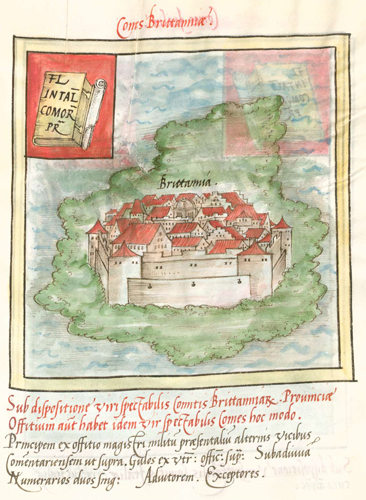 Coms Britanniæ
FL
INTAL
COMOR
PR
Brittannia.
Sub dispositione viri spectabilis Comitis Brittanniæ. Prouinciæ
Offitium aut habet idem vir spectabilis Comes hoc modo.
Principem ex offitio magistri militũ præsentaliũ alternis vicibus
Comentariensem ut supra. Gules ex vtr: offic: sup: Subadiuuã
Numerarios duos sing. Adiutorem. Exceptores.